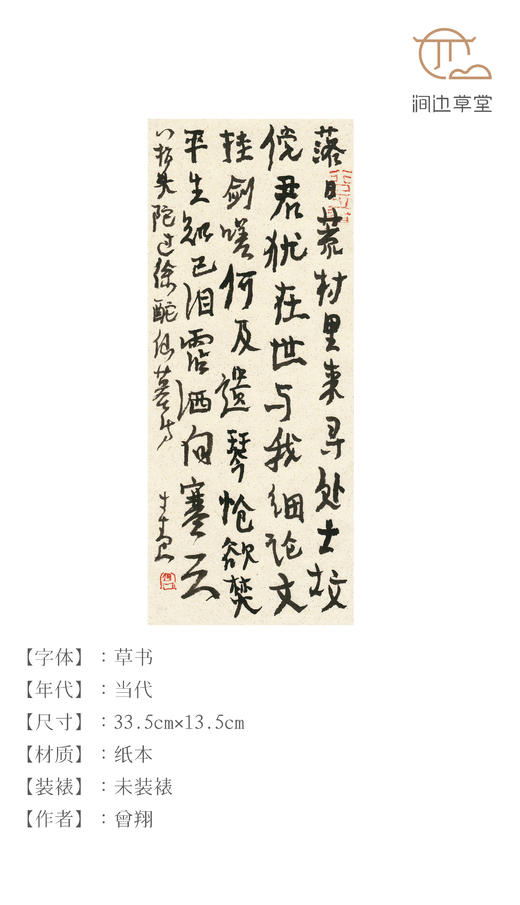 涧边草堂
落日荒村里来寻处士坟
倪君犹在世与我细论文
挂剑嗟何及遗琴怆欲焚
平生知己泪霑洒向寒云
过徐
【字体】：草书
【年代】：当代
【尺寸】：33.5cm×13.5cm
【材质】：纸本
【装裱】：未装裱
【作者】：曾翔